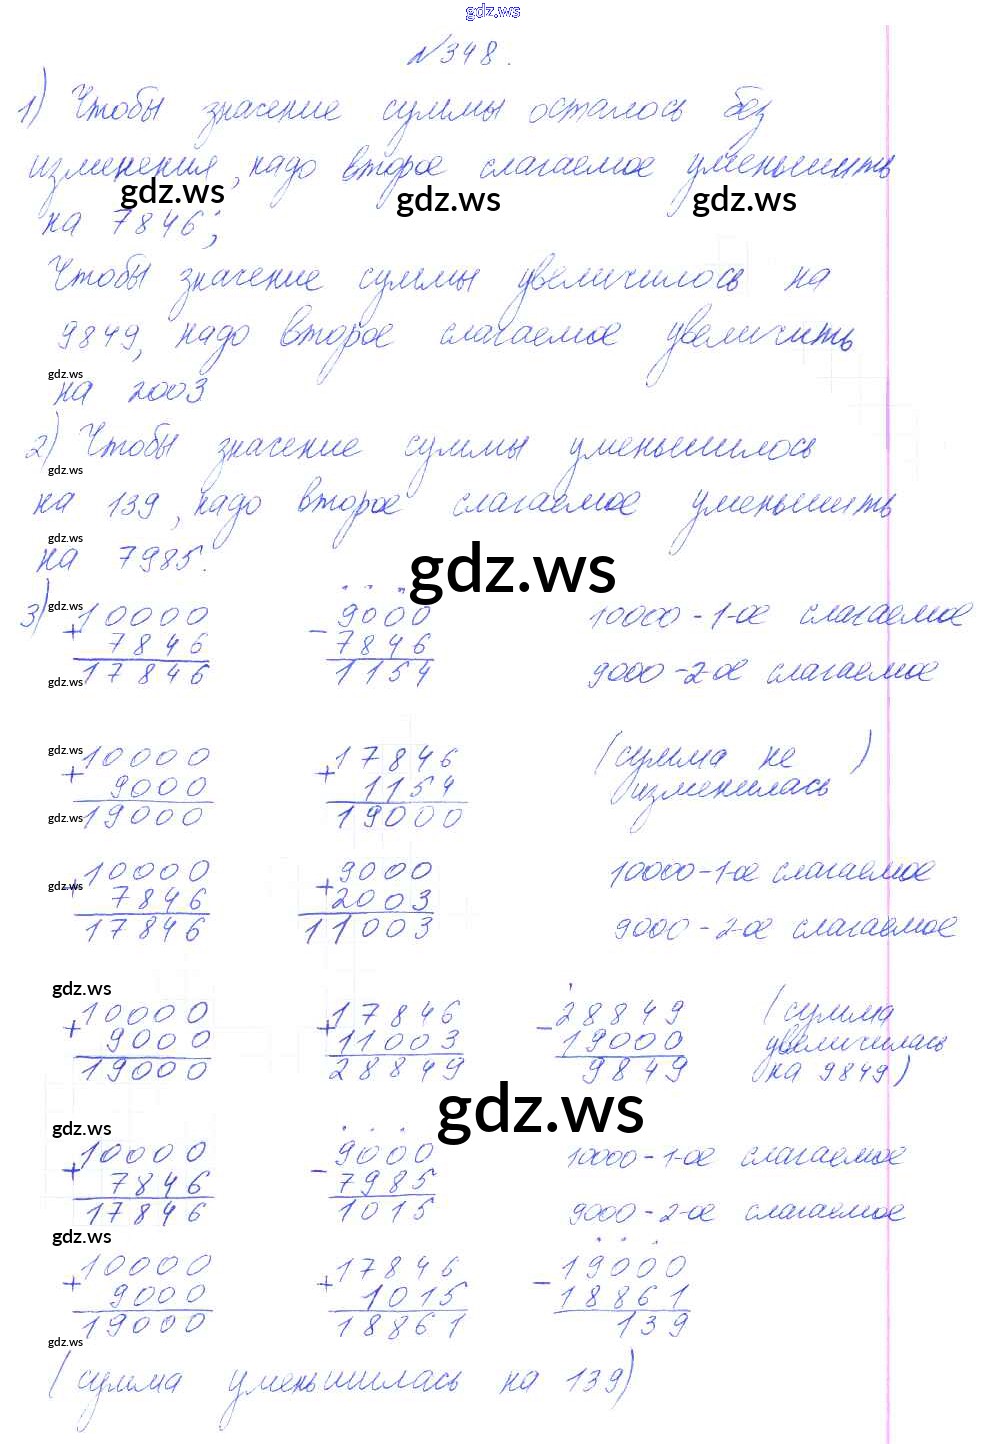 gdz.ws
№348.
1) Чтобы значение суммы осталось без
изменения, надо второе слагаемое уменьшить
gdz.ws gdz.ws gdz.ws
на 7846;
Чтобы значение суммы увеличилось на
9849, надо второе слагаемое увеличить
gdz.ws
на 2003
2) Чтобы значение суммы уменьшилось
gdz.ws
на 139, надо второе слагаемое уменьшить
gdz.ws
на 7985.
gdz.ws
3) gdz.ws 10000 9000 10000 - 1-ое слагаемое
+ 7846 - 7846
gdz.ws 17846 1154 9000 - 2-ое слагаемое
gdz.ws 10000 17846 (сумма не )
+ 9000 + 1154 изменилась
gdz.ws 19000 19000
10000 9000 10000 - 1-ое слагаемое
gdz.ws + 7846 + 2003
17846 11003 9000 - 2-ое слагаемое
gdz.ws
10000 17846 28849 (сумма
+ 9000 + 11003 - 19000 увеличилась
19000 28849 9849 на 9849)
gdz.ws
gdz.ws
10000 9000 10000 - 1-ое слагаемое
+ 7846 - 7985
17846 1015 9000 - 2-ое слагаемое
gdz.ws
10000 17846 19000
+ 9000 + 1015 - 18861
19000 18861 139
gdz.ws
(сумма уменьшилась на 139)